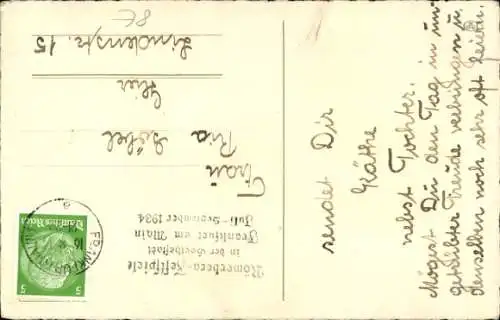 sendet Dir
Käthe
nebst Tochter.
Mögest Du den Tag in un-
getrübter Freude verbringen u.
denselben noch sehr oft feiern.
Frau
Ria Göbel
Hier
Lindenstr. 15
Römerberg-Festspiele
in der Goethestadt
Frankfurt am Main
Juli-September 1934
FRANKFURT
Deutsches Reich
5 5